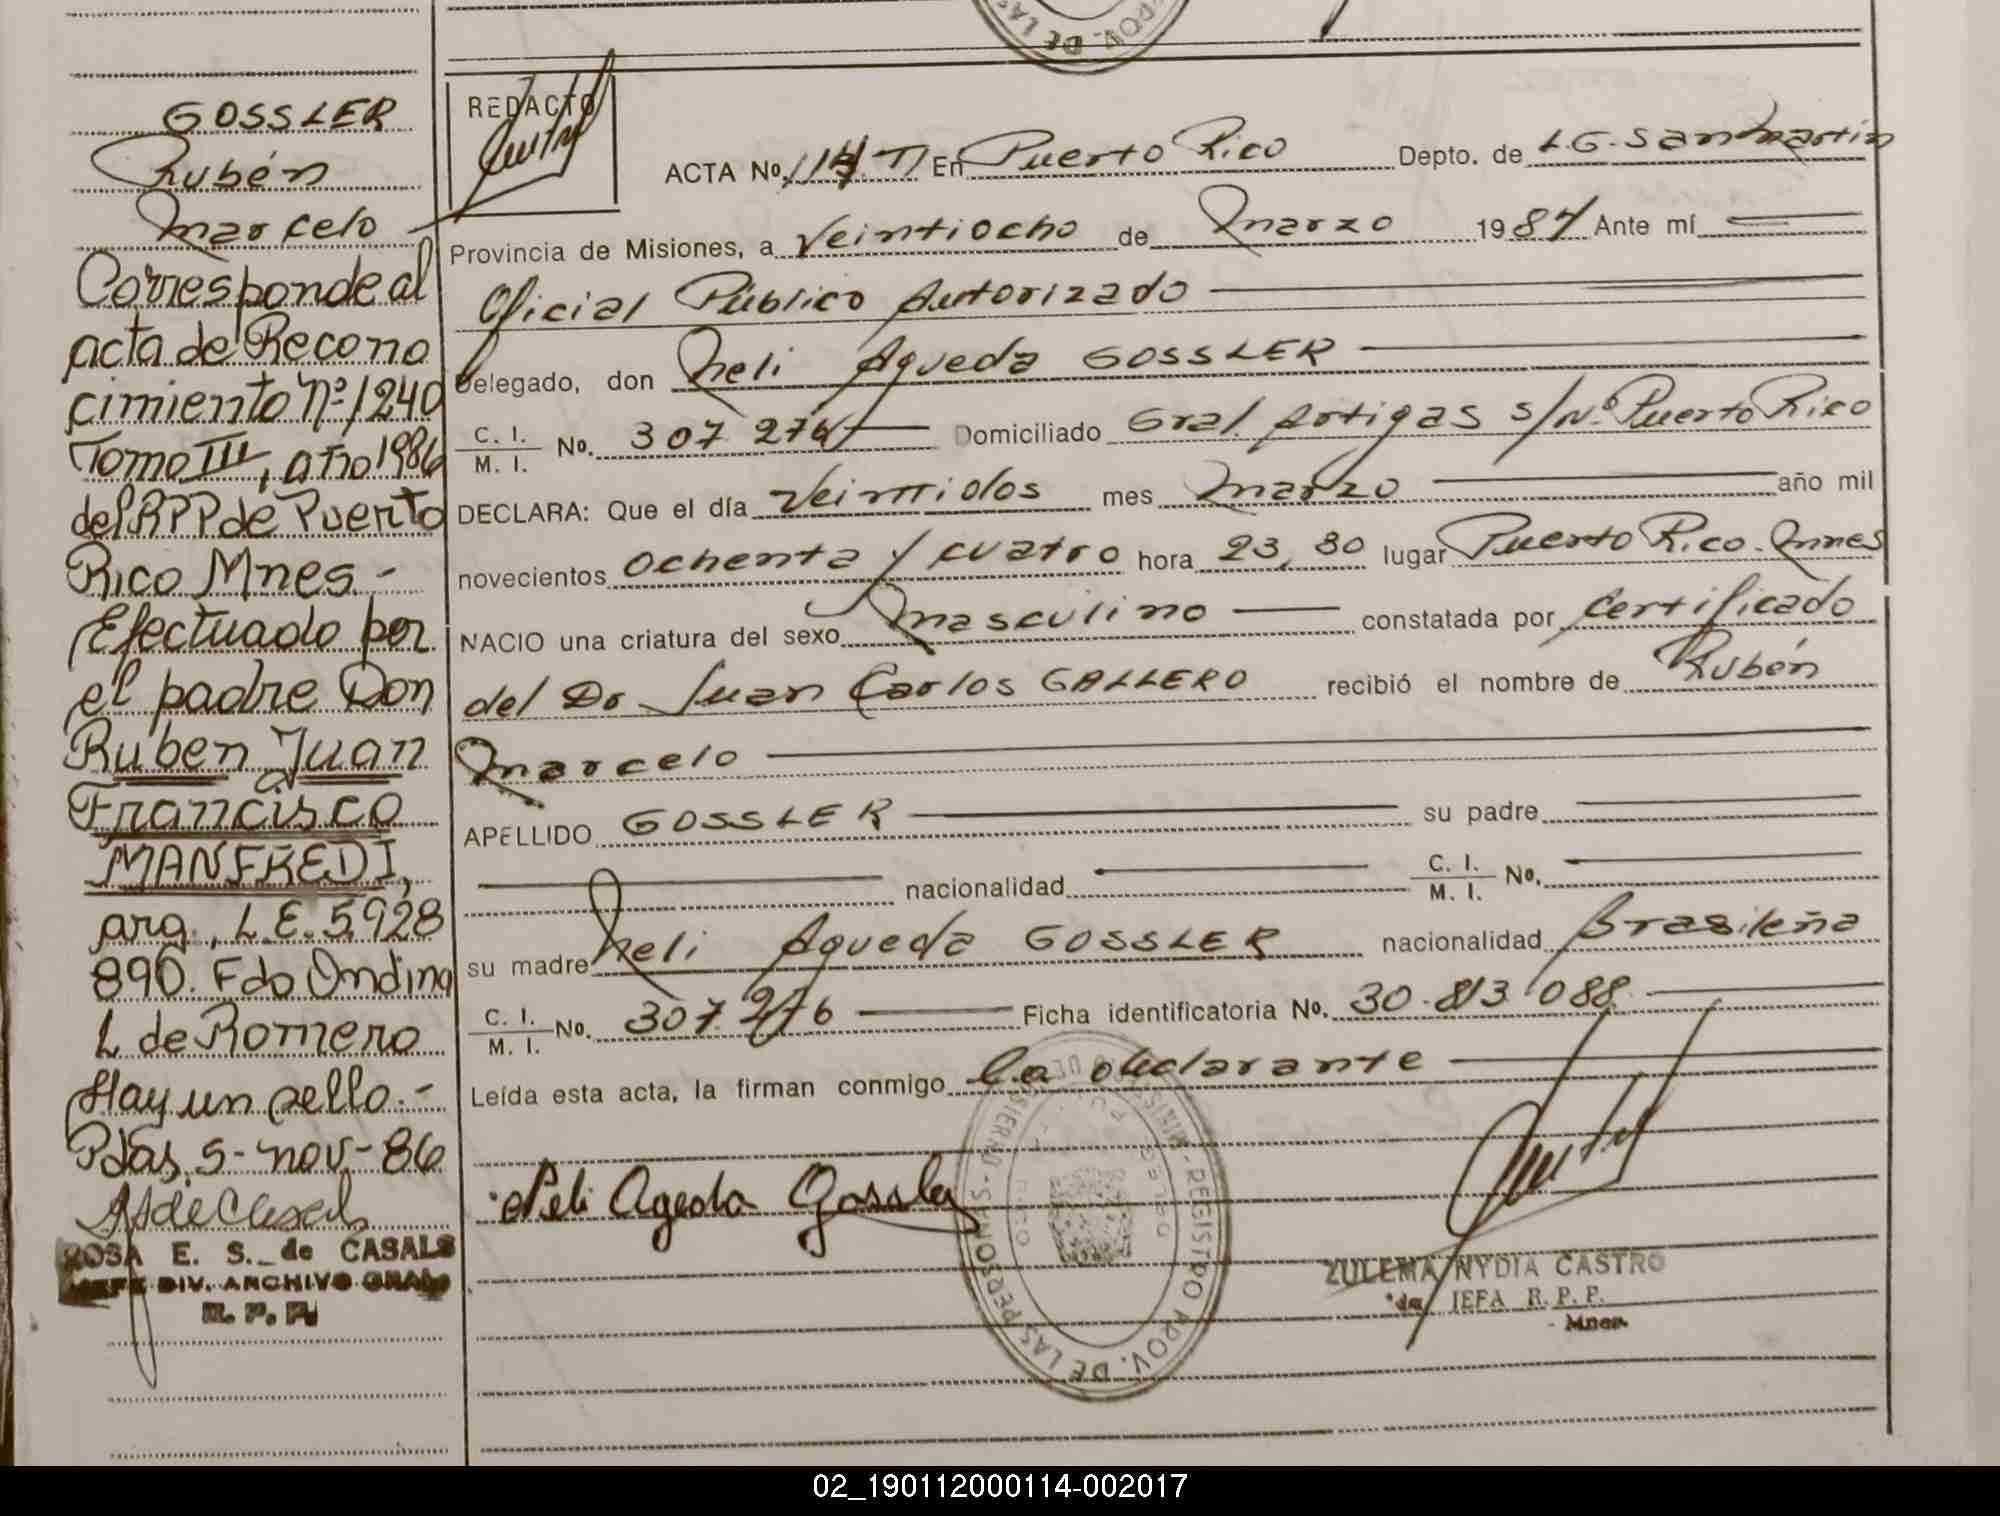 GOSSLER
Rubén
Marcelo
Corresponde al
acta de Recono
cimiento Nº 1240
Tomo III, año 1986
del RPP de Puerto
Rico Mnes.-
Efectuado por
el padre Don
Ruben Juan
Francisco
MANFREDI,
arg., L.E. 5.928
890. Fdo Ondina
L de Romero
Hay un sello.-
Pdas, 5-nov-86
ROSA E. S. de CASALS
JEFE DIV. ARCHIVO GRAL
R. P. P.
PROV. DE LAS
REDACTO
ACTA No. 114 TI En Puerto Rico Depto. de L.G. San Martin
Provincia de Misiones, a Veintiocho de Marzo 1984 Ante mí
Oficial Público Autorizado
Delegado, don Neli Agueda GOSSLER
C. I. / M. I. No. 307 276 Domiciliado Gral. Artigas s/Nº Puerto Rico
DECLARA: Que el día Veintidos mes Marzo año mil
novecientos ochenta y cuatro hora 23,30 lugar Puerto Rico. Mnes
NACIO una criatura del sexo masculino constatada por Certificado
del Dr Juan Carlos GALLERO recibió el nombre de Rubén
Marcelo
APELLIDO GOSSLER su padre
nacionalidad C. I. / M. I. No.
su madre Neli Agueda GOSSLER nacionalidad Brasileña
C. I. / M. I. No. 307.276 Ficha identificatoria No. 30.813.088
Leída esta acta, la firman conmigo la declarante
Neli Ageda Gossler
REGISTRO PROV. DE LAS PERSONAS
ZULEMA NYDIA CASTRO
JEFA R. P. P.
Mnes
02_190112000114-002017